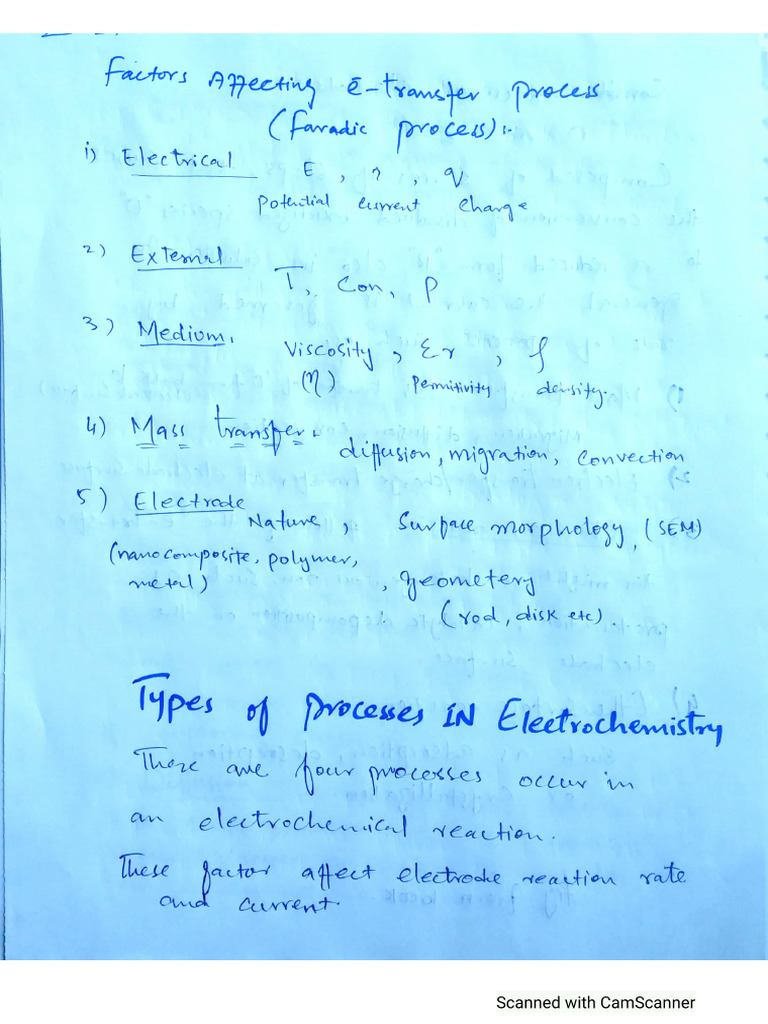 Factors Affecting ē-transfer process
(faradic process):-
i) Electrical E, i, q
Potential current charge
2) External T, Con, P
3) Medium. Viscosity, Er, ρ
(η) Permitivity density.
4) Mass transfer. diffusion, migration, convection
5) Electrode
Nature, Surface morphology, (SEM)
(nanocomposite, polymer,
metal)
, geometery
(rod, disk etc).
Types of Processes IN Electrochemistry
There are four processes occur in
an electrochemical reaction.
These factor affect electrode reaction rate
and current.
Scanned with CamScanner